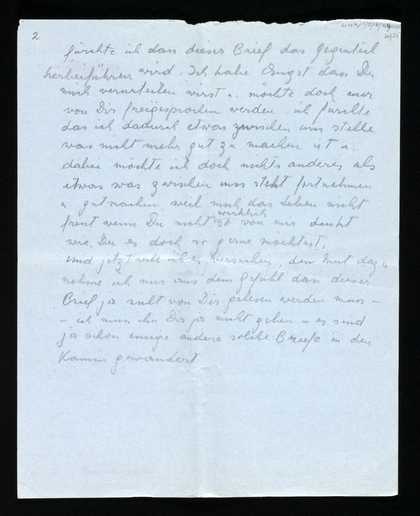 2
fürchte ich dass dieser Brief das Gegenteil
herbeiführen wird. Ich habe Angst dass Du
mich verurteilen wirst u. möchte doch nur
von Dir freigesprochen werden. ich fürchte
das ich dadurch etwas zwischen uns stelle
was nicht mehr gut zu machen ist u.
dabei möchte ich doch nichts anderes als
etwas was zwischen uns steht fortnehmen
u gutmachen weil mich das Leben nicht
freut wenn Du nicht wirklich von mir denkst
wie Du es doch so gerne möchtest,
und jetzt will ich es versuchen, den Mut dazu
nehme ich nur aus dem Gefühl dass dieser
Brief ja nicht von Dir gelesen werden muss -
- ich muss ihn Dir ja nicht geben - es sind
ja schon einige andere solche Briefe in den
Kamin gewandert